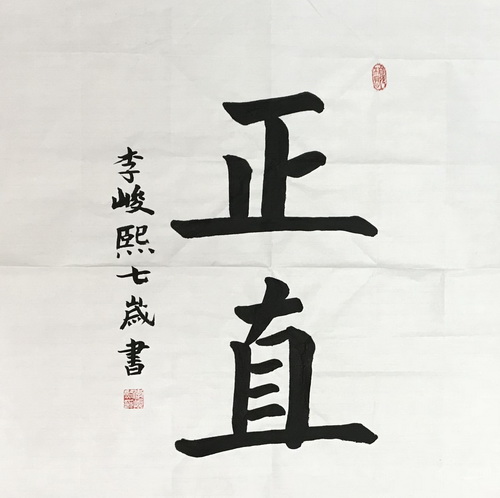 正直
李峻熙七歲書